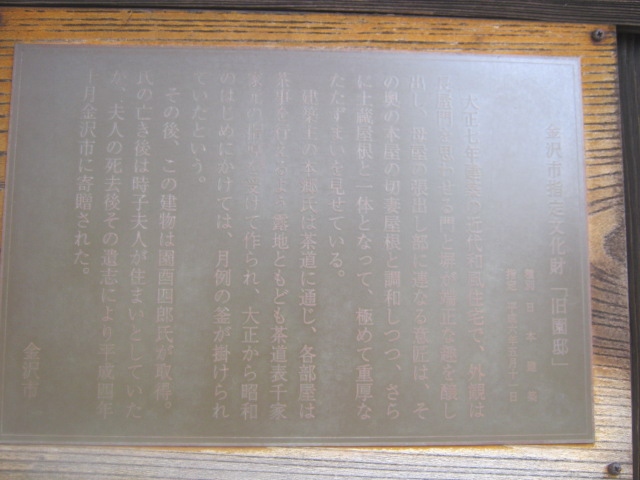 金沢市指定文化財「旧園邸」
大正七年建築の近代和風住宅で、外観は
門と塀が端正な趣を醸し
出し、母屋の張出し部に連なる意匠は、そ
の奥の本屋の切妻屋根と調和しつつ、さら
に土蔵屋根と一体となって、極めて重厚な
たたずまいを見せている。
建築主の本郷氏は茶道に通じ、各部屋は
茶事を行えるよう露地ともども茶道表千家
家元の指導を受けて作られ、大正から昭和
のはじめにかけては、月例の釜が掛けられ
ていたという。
その後、この建物は園酉四郎氏が取得。
氏の亡き後は時子夫人が住まいとしていた
が、夫人の死去後その遺志により平成四年
十月金沢市に寄贈された。
金沢市